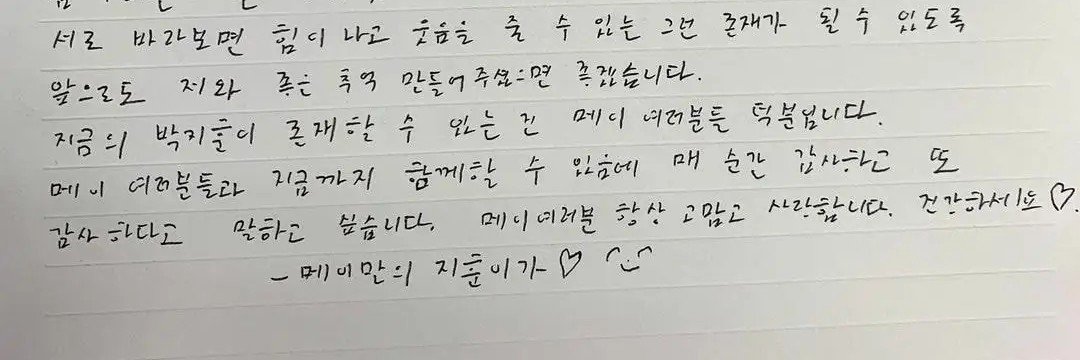 서로 바라보면 힘이 나고 웃음을 줄 수 있는 그런 존재가 될 수 있도록
앞으로도 저와 좋은 추억 만들어주셨으면 좋겠습니다.
지금의 박지훈이 존재할 수 있는 건 메이 여러분들 덕분입니다.
메이 여러분들과 지금까지 함께할 수 있음에 매 순간 감사하고 또
감사하다고 말하고 싶습니다. 메이여러분 항상 고맙고 사랑합니다. 건강하세요♡.
- 메이만의 지훈이가♡ ^-^